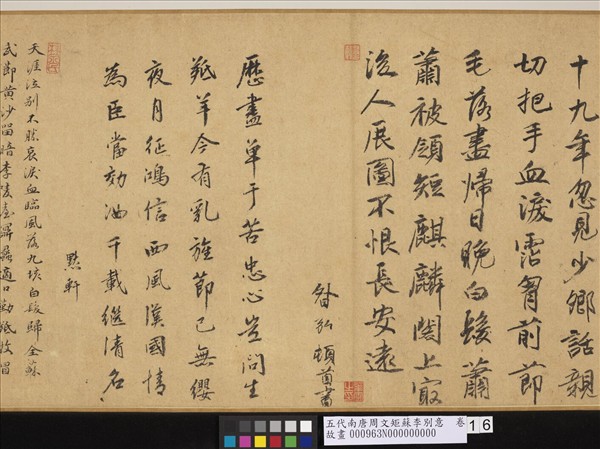 十九年忽見少卿話親
切把手血淚霑胷前節
毛落盡歸日晚白髮蕭
蕭被領短麒麟閣上
後人展圖不恨長安遠
頓首書
歷盡單于苦忠心豈問生
羝羊今有乳旌節已無纓
夜月征鴻信西風漢國情
為臣當効汝千載繼清名
默軒
天涯泣別不勝哀淚血臨風落九垓白髮歸全蘇
武節黃沙留暗李陵臺
五代南唐周文矩蘇李別意 卷
故畫 000963N000000000
16